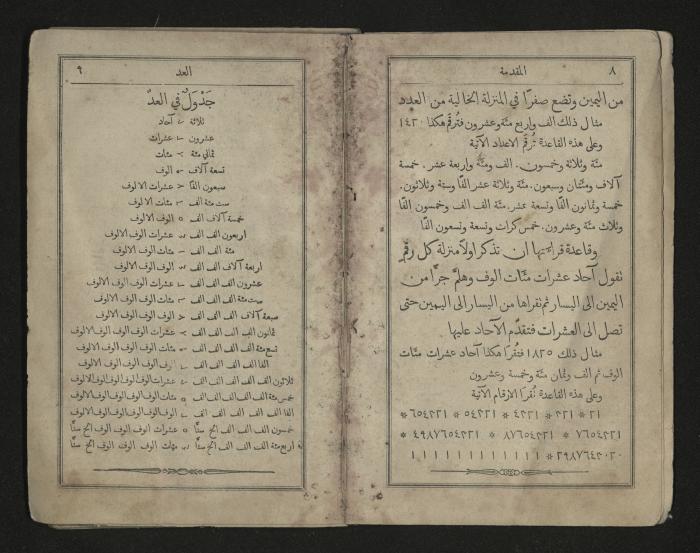 ٨ المقدمة
من اليمين وتضع صفرًا في المنزلة الخالية من العدد
مثال ذلك الف واربع مئة وعشرون فترقم هكذا ١٤٢٠
وعلى هذه القاعدة ترقم الاعداد الآتية
مئة وثلاثة وخمسون. الف ومئة واربعة عشر. خمسة
آلاف ومئتان وسبعون. مئة وثلاثة عشر الفًا وستة وثلاثون.
خمسة وثمانون الفًا وتسعة عشر. مئة الف الف وخمسون الفًا
وثلاث مئة وعشرون. خمس كرات وتسعة وتسعون الفًا
وقاعدة قراءتها ان تذكر اولًا منزلة كل رقم
نقول آحاد عشرات مئات الوف وهلمَّ جرًّا من
اليمين الى اليسار ثم نقراها من اليسار الى اليمين حتى
تصل الى العشرات فتقدَّم الآحاد عليها
مثال ذلك ١٨٢٥ فتقرأ هكذا آحاد عشرات مئات
الوف ثم الف وثمان مئة وخمسة وعشرون
وعلى هذه القاعدة تُقرَأ الارقام الآتية
٢١ * ٢٢١ * ٤٢٢١ * ٥٤٢٢١ * ٦٥٤٢٢١ *
٧٦٥٤٢٢١ * ٨٧٦٥٤٢٢١ * ٤٩٨٧٦٥٤٢٢١
٩ العد
جَدْوَلٌ في العدّ
ثلاثة آحاد
عشرون عشرات
ثماني مئة مئات
تسعة آلاف الوف
سبعون الفًا عشرات الالوف
ست مئة الف مئات الالوف
خمسة آلاف الف الوف الالوف
اربعون الف الف عشرات الوف الالوف
مئة الف الف مئات الوف الالوف
اربعة آلاف الف الف الوف الوف الالوف
عشرون الف الف الف عشرات الوف الوف الالوف
ست مئة الف الف الف مئات الوف الوف الالوف
سبعة آلاف الف الف الف الوف الوف الوف الالوف
ثمانون الف الف الف الف عشرات الوف الوف الوف الالوف
تسع مئة الف الف الف الف مئات الوف الوف الوف الالوف
الفا الف الف الف الف الوف الوف الوف الوف الالوف
ثلاثون الف الف الف الف الف عشرات الوف الوف الوف الوف الالوف
خمس مئة الف الف الف الف الف مئات الوف الوف الوف الوف الالوف
الفا الف الف الف الف الف الوف الوف الوف الوف الوف الالوف
خمسون الف الف الف الخ ستًّا عشرات الوف الوف الوف الخ ستًّا
اربع مئة الف الف الف الخ ستًّا مئات الوف الوف الوف الخ ستًّا